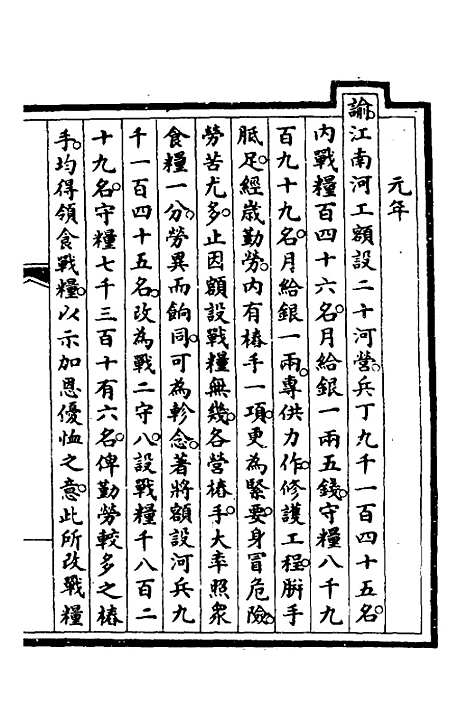 元年
諭。江南河工額設二十河營。兵丁九千一百四十五名。
內戰糧百四十六名。月給銀一兩五錢。守糧八千九
百九十九名。月給銀一兩。專供力作。修護工程。胼手
胝足。經歲勤勞。內有樁手一項。更為緊要。身冒危險。
勞苦尤多。止因額設戰糧無幾。各營樁手。大率照衆
食糧一分。勞異而餉同。可為軫念。著將額設河兵九
千一百四十五名。改為戰二守八。設戰糧千八百二
十九名。守糧七千三百十有六名。俾勤勞較多之樁
手。均得領食戰糧。以示加恩優恤之意。此所改戰糧